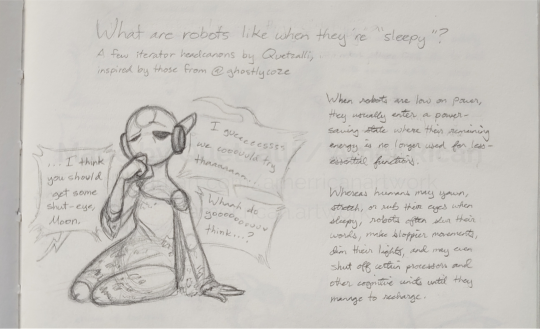 What are robots like when they're "sleepy"?
A few iterator headcanons by Quetzalli,
inspired by those from @ghostlycoze
...I think
you should
get some
shut-eye,
Moon.
I guezzzzsss
we coooould try
thaaaaaan...
Whaah do
yooooouuu
think...?
When robots are low on power,
they usually enter a power-
saving state where their remaining
energy is no longer used for less-
essential functions.
Whereas humans may yawn,
stretch, or rub their eyes when
sleepy, robots often slur their
words, make sloppier movements,
dim their lights, and may even
shut off certain processors and
other cognitive units until they
manage to recharge.